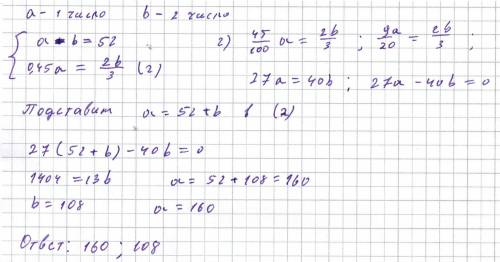 a - 1 число    b - 2 число
{ a - b = 52
0,45a = 2b/3 (2)
2) 45/100 a = 2b/3 ; 9a/20 = 2b/3 ;
27a = 40b ; 27a - 40b = 0
Подставит a = 52 + b в (2)
27 (52 + b) - 40b = 0
1404 = 13b    a = 52 + 108 = 160
b = 108    a = 160
Ответ: 160 ; 108